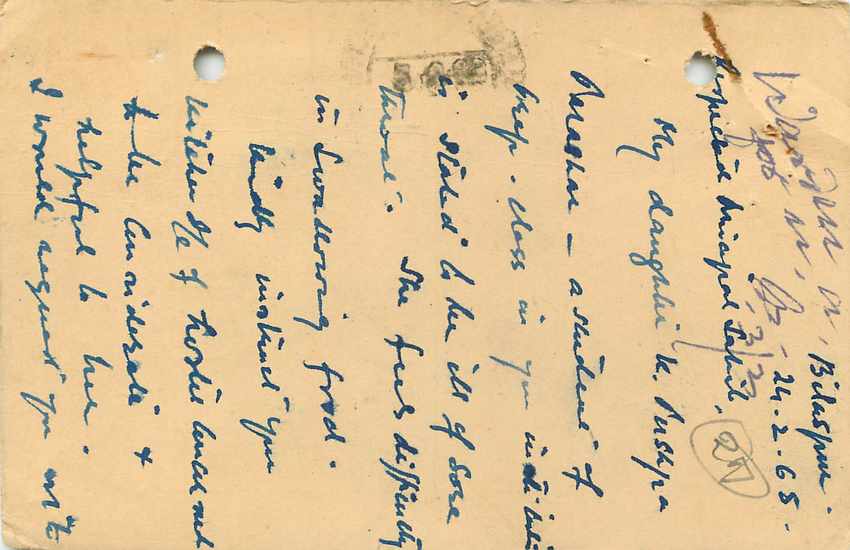 Bilaspur.
24.2.65.
Respected Principal Sahib,
My daughter K. Pushpa
Parashar - a student of
Prep. class in your institution
is stated to be ill of sore
throat. She feels difficulty
in swallowing food.
Kindly instruct your
kitchen I/c & hostel
to be considerate &
helpful to her.
I would request you with
Warden
27